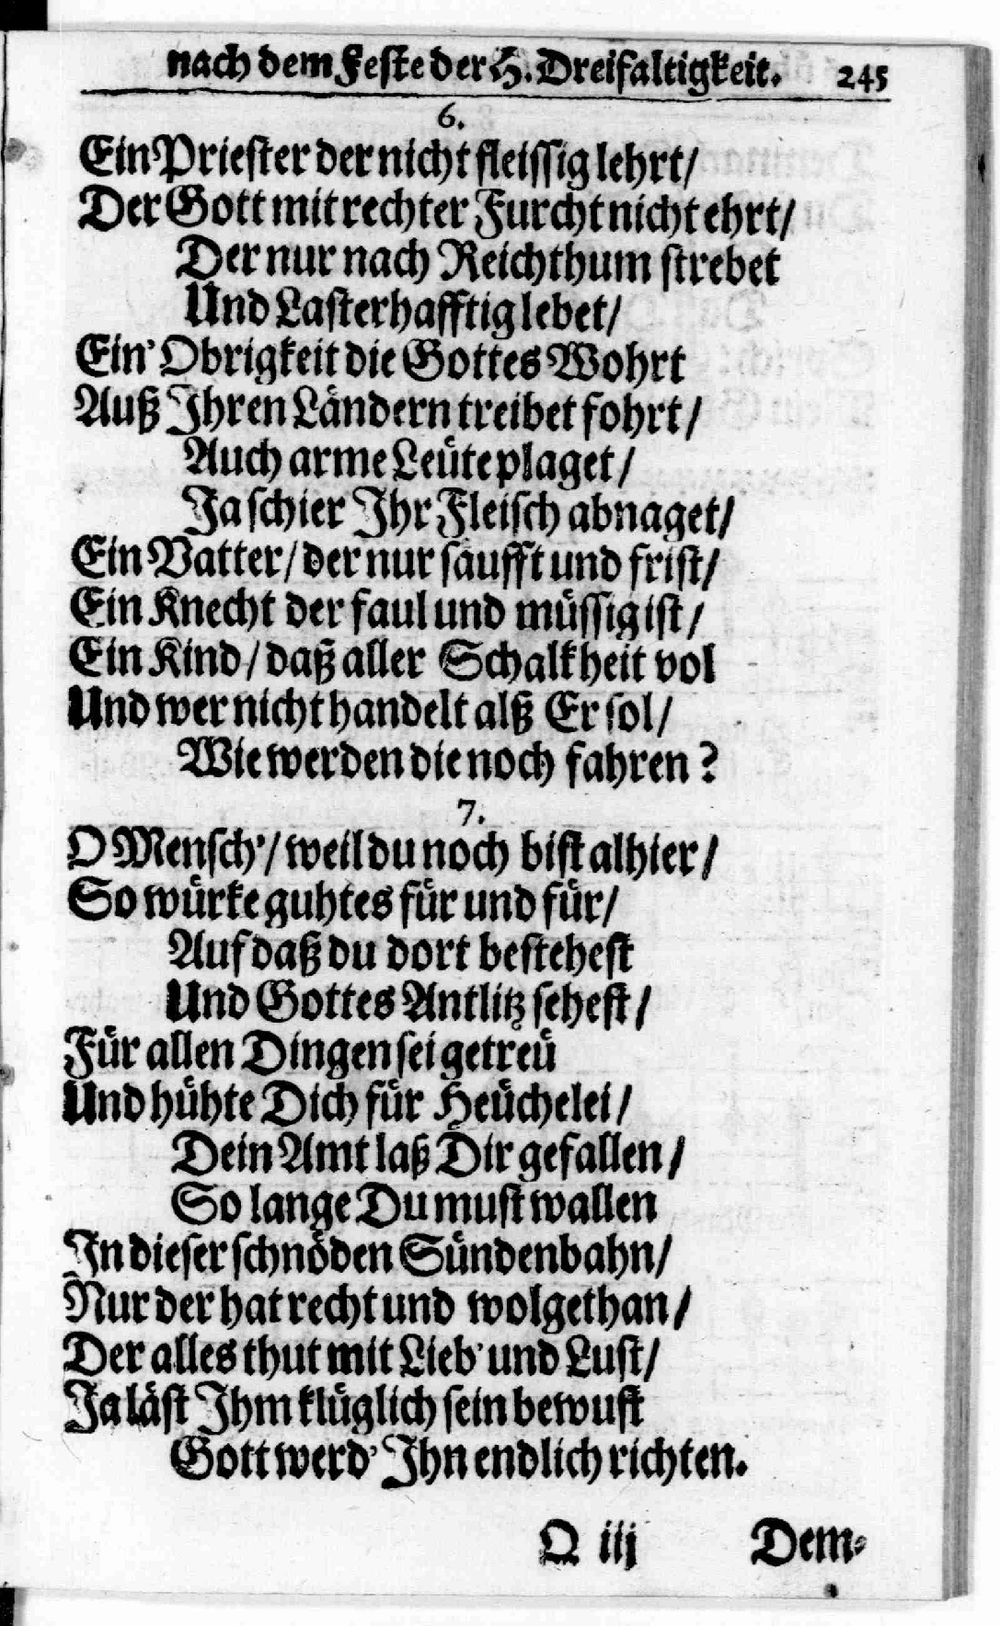 nach dem Feste der H. Dreifaltigkeit. 245
6.
Ein Priester der nicht fleissig lehrt/
Der Gott mit rechter Furcht nicht ehrt/
Der nur nach Reichthum strebet
Und Lasterhafftig lebet/
Ein' Obrigkeit die Gottes Wohrt
Auß Ihren Ländern treibet fohrt/
Auch arme Leüte plaget/
Ja schier Ihr Fleisch abnaget/
Ein Vatter/ der nur säufft und frist/
Ein Knecht der faul und müssig ist/
Ein Kind/ daß aller Schalkheit vol
Und wer nicht handelt alß Er sol/
Wie werden die noch fahren?
7.
O Mensch'/ weil du noch bist alhier/
So würke guhtes für und für/
Auf daß du dort bestehest
Und Gottes Antlitz sehest/
Für allen Dingen sei getreü
Und hühte Dich für Heüchelei/
Dein Amt laß Dir gefallen/
So lange Du must wallen
In dieser schnöden Sündenbahn/
Nur der hat recht und wolgethan/
Der alles thut mit Lieb' und Lust/
Ja läst Ihm klüglich sein bewust
Gott werd' Ihn endlich richten.
Q iij Dem-